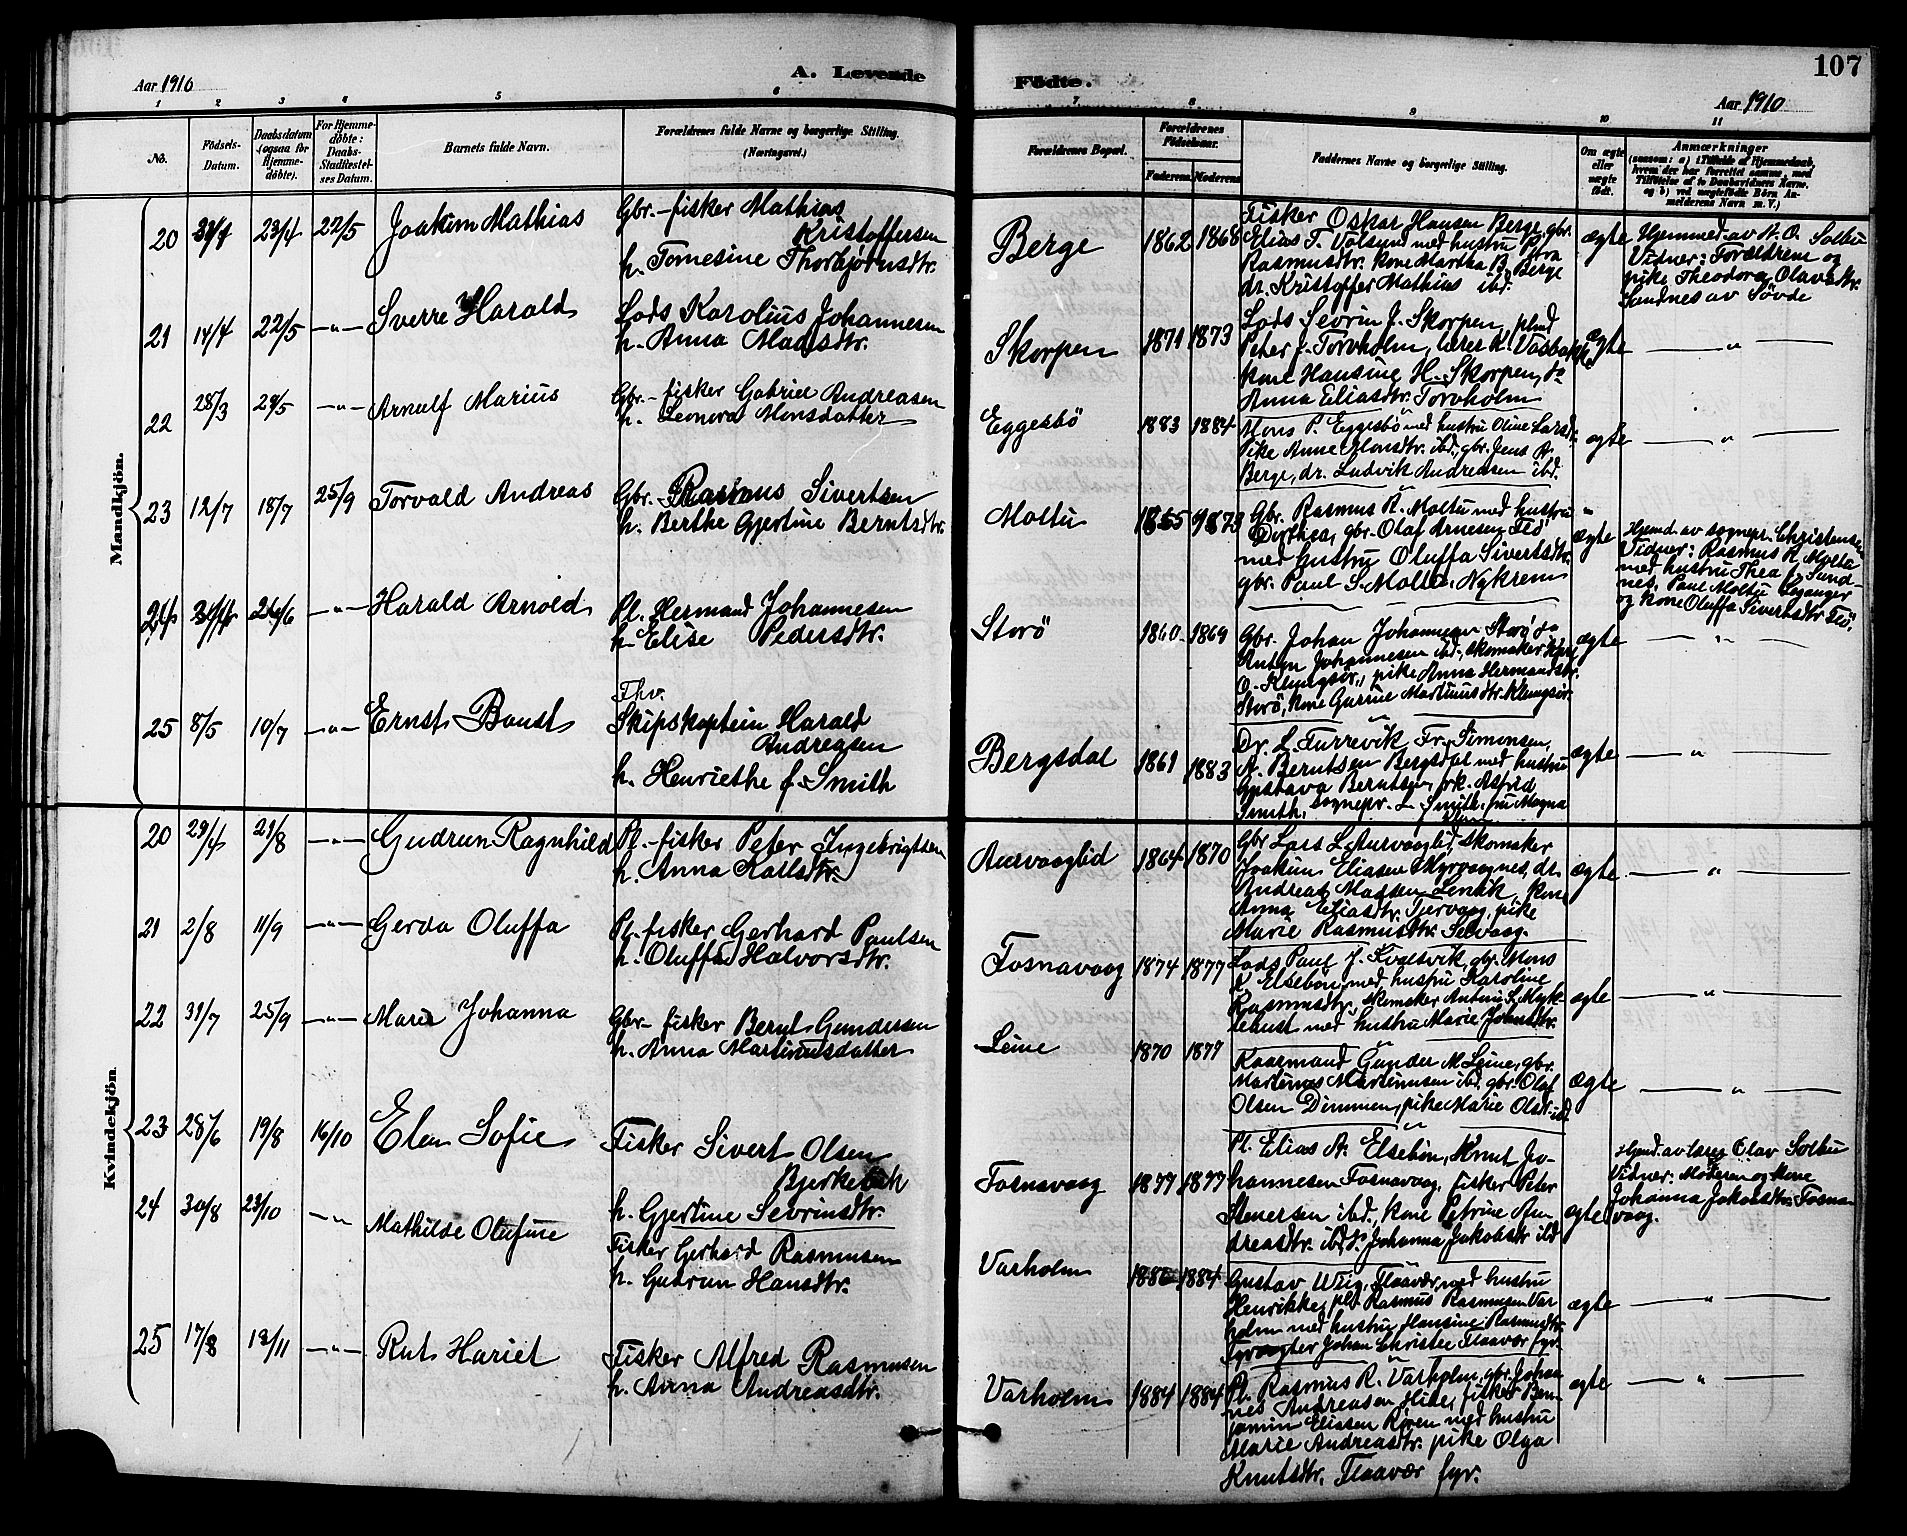 107
Aar 1910
A. Levende
Födte.
Aar 1910
1 2 3 4 5 6 7 8 9 10 11
No.
Födsels-
Datum.
Daabsdatum
(ogsaa for
Hjemme-
döbte).
For Hjemme-
döbte:
Daabs-
Stadfæstel-
ses Datum.
Barnets fulde Navn.
Forældrenes fulde Navne og borgerlige Stilling.
(Næringsvei.)
Forældrenes Bopæl.
Forældrenes
Födselsaar.
Faderens Moderens
Faddernes Navne og borgerlige Stilling.
Om ægte
eller
uægte
födt.
Anmærkninger
(saasom: a) i Tilfælde af Hjemmedaab,
hvem der har forrettet samme, med
Tilföielse af to Daabsvidners Navne,
og b) ved uægtefödte Börn An-
melderens Navn m. V.)
Mandkjön.
20 23/4 22/5 Joakim Mathias
Gbr.-fisker Mathias
Kristoffersen
h. Tomesine Thorbjørnsdtr.
Berge 1862 1868
Fisker Oskar Hansen Berge, gbr.
Elias T. Volsund med hustru Petra
Rasmusdtr. kone Martha B. Berge
dr. Kristoffer Mathias ibd.
ægte
Hjemmed. av N. O. Solbu
Vidner: Forældrene og
pike Theodora Olavsdtr.
Sandnes av Søvde
21 14/4 22/5 -"- Sverre Harald
Lods Karolius Johannesen
h. Anna Madsdtr.
Skorpen 1871 1873
Lods Sevrin J. Skorpen,
Peter J. Torvholm, lærer K. Vasbakke
kone Hansine H. Skorpen, do
Anna Eliasdtr. Torvholm
ægte — " —
22 28/3 -"- Arnulf Marius
Gbr.-fisker Gabriel Andreasen
h. Leonora Monsdatter
Eggesbö 1883 1884
Mons P. Eggesbö med hustru Oline Larsdtr.
Pike Anne Monsdtr. ibd., gbr. Jens A.
Berge, dr. Ludvik Andreasen ibd.
ægte — " —
23 12/7 18/7 25/9 Torvald Andreas
Gbr. Rasmus Sivertsen
h. Berthe Gjertine Berntsdtr.
Moltu 1873
Gbr. Rasmus R. Moltu med hustru
Dorthea, gbr. Olaf Arnesen Flö
med hustru Oluffa Sivertsdtr.
gbr. Paul S. Moltu, Nykrem
ægte
Hjemd. av sognepr. Christensen
Vidner: Rasmus R. Moltu
med hustru Thea f. Sand
nes, Paul Moltu Leganger
og kone Oluffa Sivertsdtr Flö.
24 -"- Harald Arnold
Pl. Hermand Johannesen
h. Elise Pedersdtr.
Storö 1860 1869
Gbr. Johan Johannesen Storö do
Anton Johannesen ibd., skomaker
O. Klungsör, pike Anna Hermandsdtr.
Storö, kone Gurine Martinusdtr. Klungsör.
ægte — " —
25 8/5 10/7 -"- Ernst
Fhv.
Skipskaptein Harald
Andreasen
h. Henriethe f. Smith
Bergsdal 1861 1883
Dr. L. Furrevik, Fr. Simonsen,
A. Berntsen Bergsdal med hustru
Gustava Berntsen, frk. Astrid
Smith, sognepr. L. Smith, fru Magna
ægte — " —
Kvindekjön
20 29/4 21/8 -"- Gudrun Ragnhild
Pl.-fisker Peter Ingebrigtsen
h. Anna Karlsdtr.
Aurvaaglid 1864 1870
Gbr Lars L. Aurvaaglid, skomaker
Joakim Eliasen Myrvaagnes, dr.
Andreas Madsen Lenik, kone
Anna Eliasdtr. Tjervaag, pike
Marie Rasmusdtr. Selvaag.
ægte — " —
21 2/8 11/9 -"- Gerda Oluffa
Pl.-fisker Gerhard Paulsen
h. Oluffa Halvorsdtr.
Fosnavaag 1874 1877
Lods Paul J. Kvalsvik, gbr. Mons
R. Elsebön, med hustru Karoline
Rasmusdtr. skomaker Anton L. Myk-
lebust med hustru Marie
ægte — " —
22 31/7 25/9 -"- Marie Johanna
Gbr-fisker Bernt Gundersen
h. Anna Martinusdatter
Leine 1870 1877
Kaarmand Gunder M. Leine, gbr.
Martinus Martinusen ibd. gbr. Olaf
Olsen Dimmen, pike Marie Olsdtr. ibd
ægte — " —
23 28/6 19/8 16/10 Elen Sofie
Fisker Sivert Olsen
Bjerkebæk
h. Gjertine Sevrinsdtr.
Fosnavaag 1877 1877
Pl. Elias A. Elsebön, Knut Jo-
hannesen Fosnavaag, fisker Peter
Stenersen ibd., kone Petrine An-
dreasdtr. ibd, Johanna Jakobsdtr ibd
ægte
Hjemd. av lærer Olav Solbu
Vidner: Moderen og kone
Johanna Jakobsdtr. Fosna-
vaag.
24 30/8 23/10 -"- Mathilde Olufine
Fisker Gerhard Rasmusen
h. Gudrun Hansdtr.
Varholm 1884
Gustav Urig, Flaavær, med hustru
Henrikke, pl. Rasmus Rasmusen Var
holm med hustru Hansine Rasmusdtr.
Fyrvogter Johan Christie Flaavær fyr.
ægte — " —
25 17/8 13/11 -"- Rut Hariet
Fisker Alfred Rasmusen
h. Anna Andreasdtr.
Varholm 1884 1884
Pl. Rasmus R. Varholm, gbr. Johan
nes Andreasen Hide, fisker Ben-
jamin Eliasen Røren med hustru
Marie Andreasdtr. pike Olga
Knutsdtr. Flaavær fyr.
ægte — " —